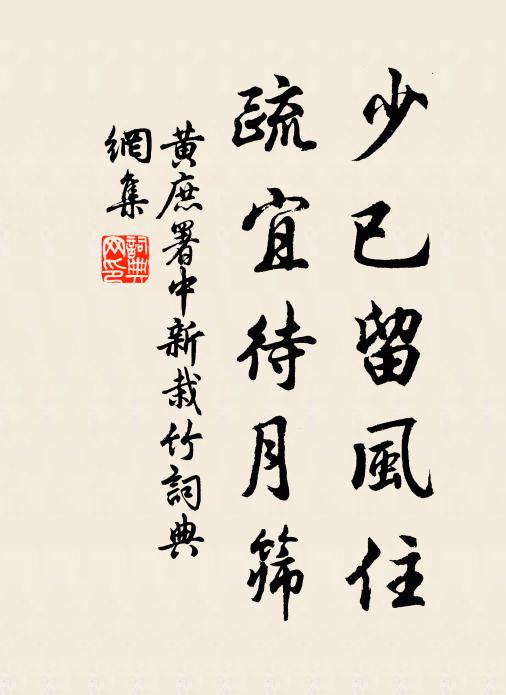 少已留風住
疏宜待月篩
黃庶署中新栽竹詞典
網集
詞典網印